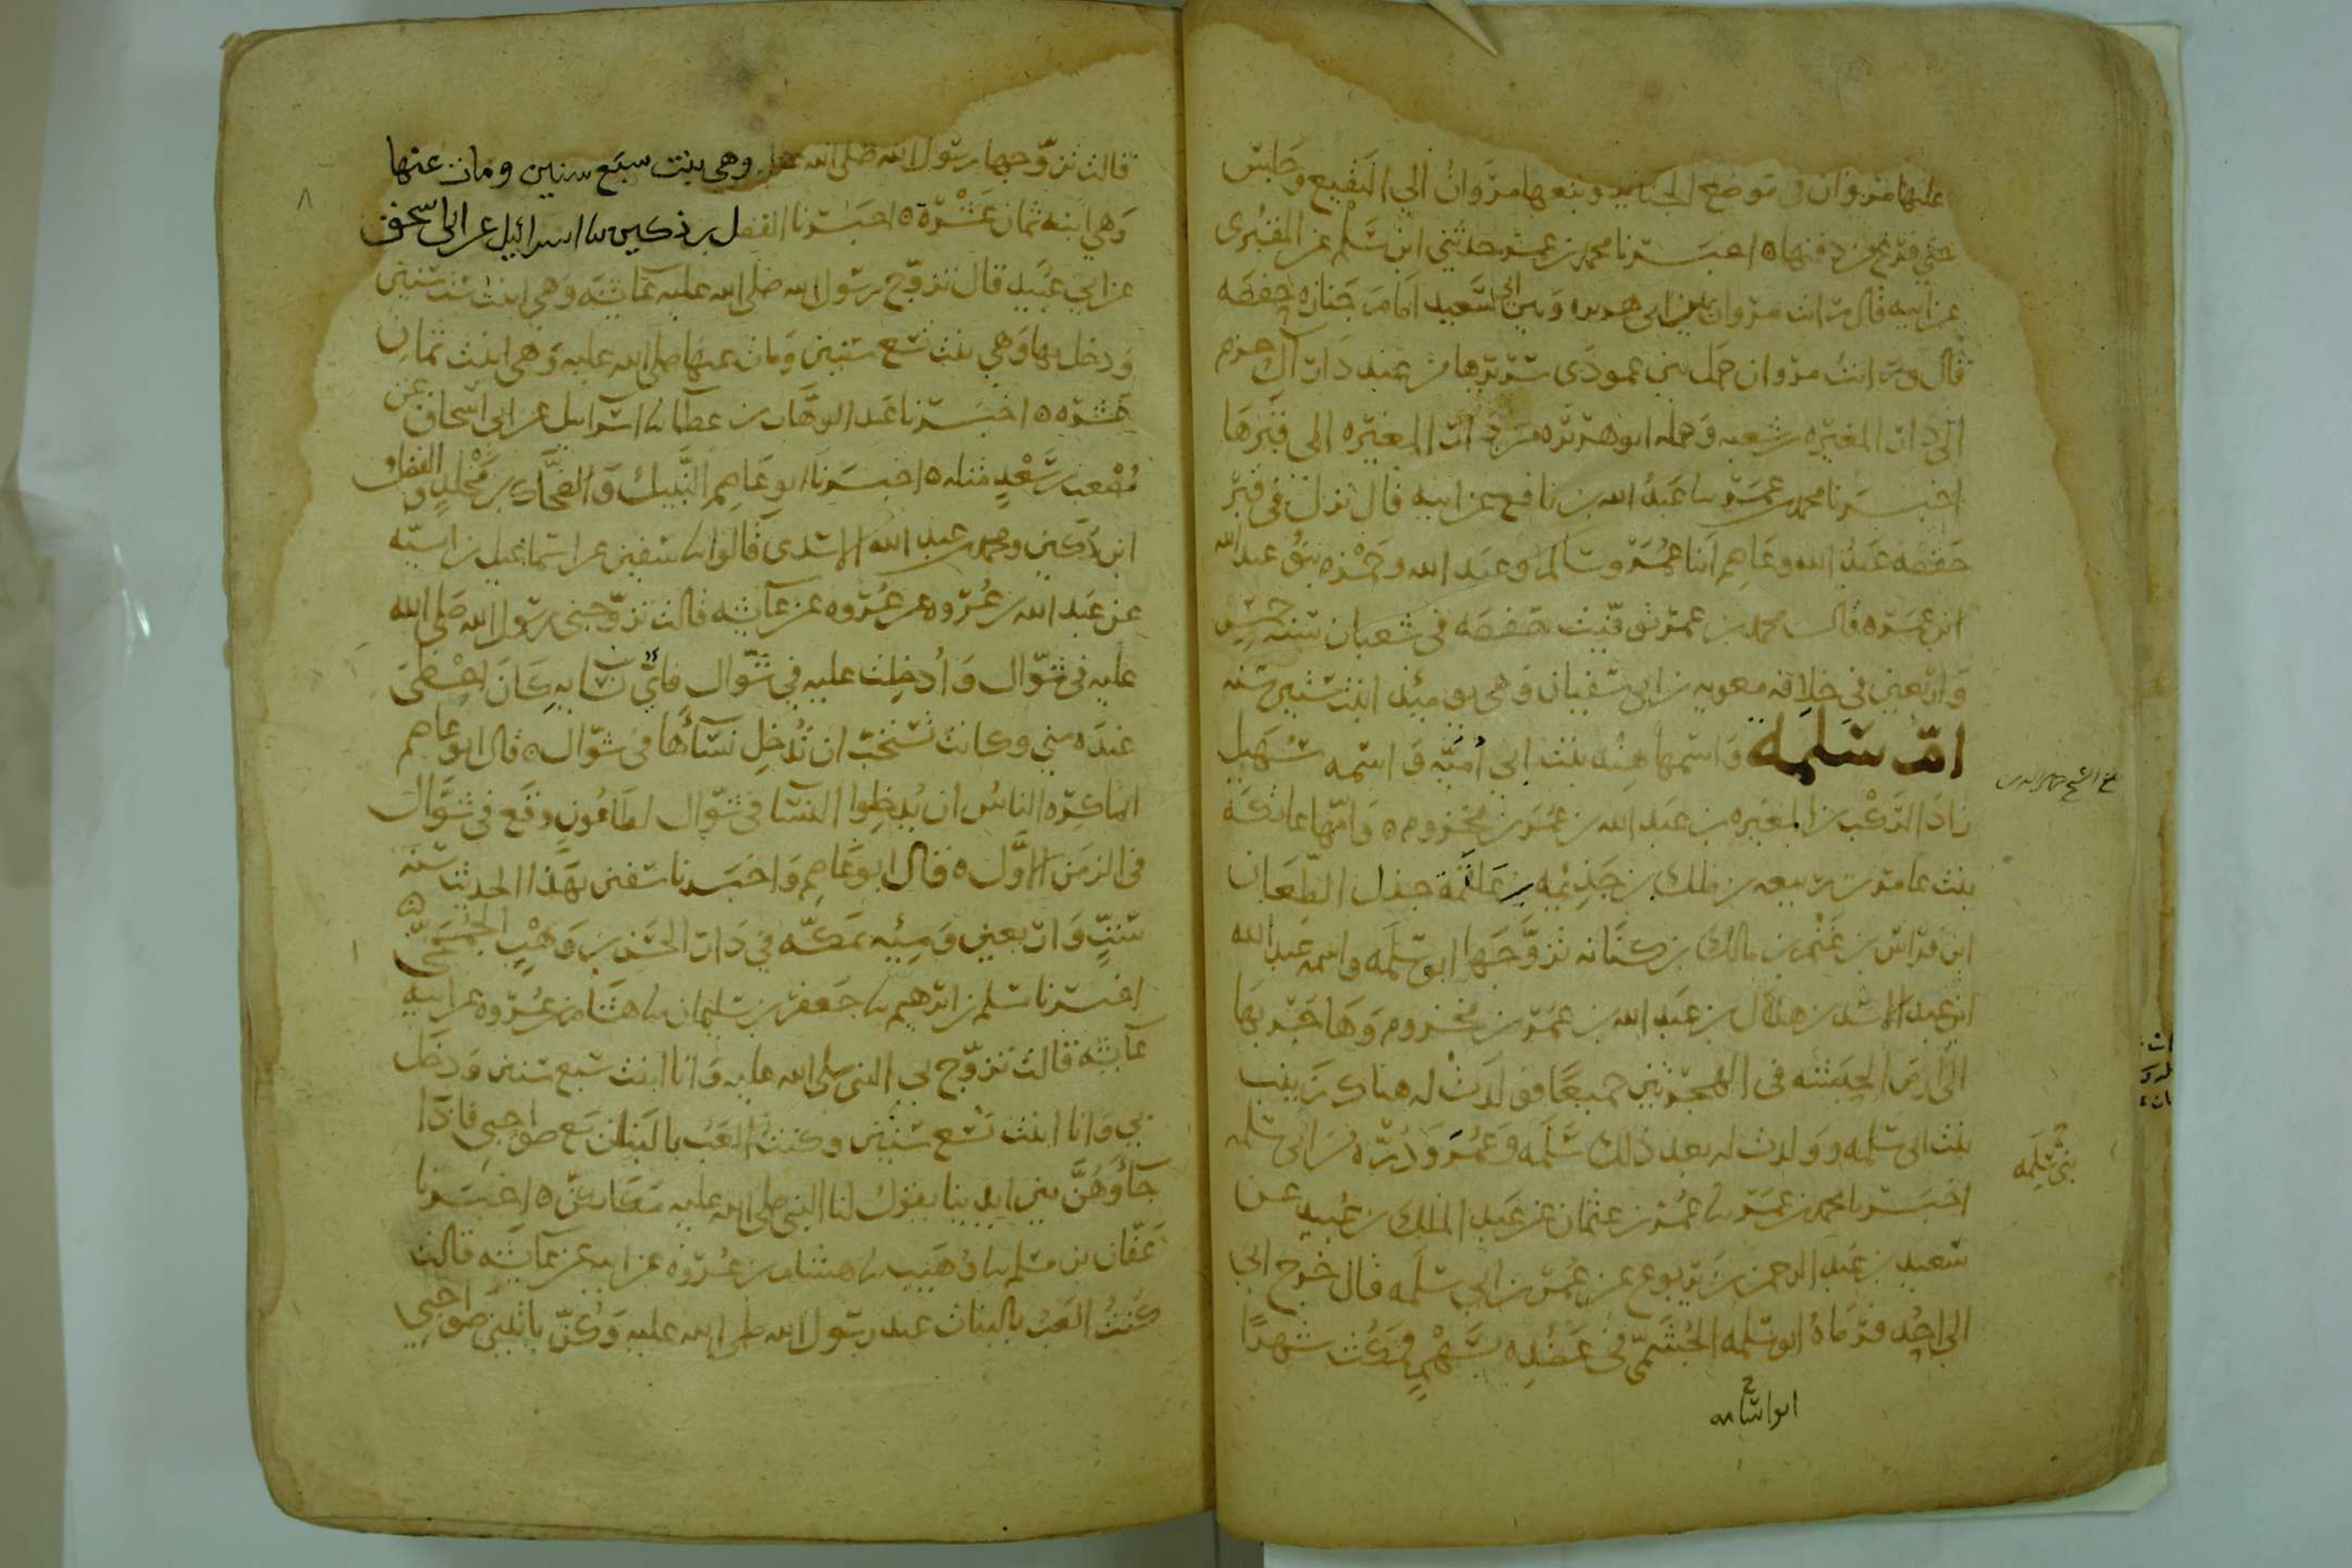 عليها مروان في موضع الجنايز وتبعها مروان الي البقيع وجلس
حتي فرغ من دفنها ه اخبــرنا محمد بن عمر حدثني ابن مسلم عن المقبري
عن ابيه قال رايت مروان بين ابي هريره وبين ابي سعيد امام جنازه حفصه
قال ورايت مروان حمل بين عمودي سريرها من عند دار آل حزم
الي دار المغيره بن شعبه وحمله ابو هريره من دار المغيره الي قبرها
اخبــرنا محمد بن عمر سا عبد الله بن نافع عن ابيه قال نزل في قبر
حفصه عبد الله وعاصم ابنا عمر وسالم وعبد الله وحمزه بنو عبد الله
ابن عمر ه قال محمد بن عمر توفيت حفصه في شعبان سنه خمس
واربعين في خلافه معويه بن ابي سفيان وهي يوميذ ابنت ستين سنه
ام سلمه واسمها هند بنت ابي اميه واسمه سهيل
زاد الركب بن المغيره بن عبد الله بن عمر بن مخزوم ه وامها عاتكه
بنت عامر بن ربيعه بن ملك بن جذيمه بن علقمة جذل الطعان
ابن فراس بن غنم بن مالك بن كنانه تزوجها ابو سلمه واسمه عبد الله
ابن عبد الاسد بن هلال بن عبد الله بن عمر بن مخزوم وهاجر بها
الي ارض الحبشه في الهجرتين جميعا فولدت له هناك زينب
بنت ابي سلمه وولدت له بعد ذلك سلمه وعمر ودره بن ابي سلمه
بني سلمه
اخبــرنا محمد بن عمر سا عمر بن عثمان عن عبد الملك بن عبيد عن
سعيد بن عبد الرحمن بن يربوع عن عمر بن ابي سلمه قال خرج ابي
الي احد فرماه ابو سلمه الجشمي في عضده بسهم فمكث شهرا
ابو اسامه
قالت تزوجها رسول الله صلى الله عليه وهي بنت سبع سنين ومات عنها
وهي ابنه ثمان عشرة ه اخبــرنا الفضل بن دكين سا اسرائيل عن ابي اسحق
عن ابي عبيد قال تزوج رسول الله صلى الله عليه عايشه وهي ابنت ست سنين
ودخل بها وهي بنت تسع سنين ومات عنها صلى الله عليه وهي ابنت ثمان
عشره ه اخبــرنا عبد الوهاب بن عطا سا اسرايل عن ابي اسحاق عن
مصعب بن سعد مثله ه اخبــرنا ابو عاصم النبيل والضحاك بن مخلد والفضل
ابن دكين ومحمد بن عبد الله الاسدي قالوا سا سفين عن اسماعيل بن اميه
عن عبد الله بن عروه عن عروه عن عايشه قالت تزوجني رسول الله صلى الله
عليه في شوال وادخلت عليه في شوال فاي نسايه كان احظي
عنده مني وكانت تستحب ان تدخل نسآءها في شوال ه قال ابو عاصم
انما كره الناس ان يدخلوا النسا في شوال لطاعون وقع في شوال
في الزمن الاول ه قال ابو عاصم واخبــرنا سفين بهذا الحديث سنه
ست واربعين ومئيه بمكه في دار الحسن بن وهب الجمحي
اخبــرنا مسلم بن ابرهيم سا جعفر بن سليمان سا هشام بن عروه عن ابيه
عايشه قالت تزوج بي النبي صلى الله عليه وانا ابنت سبع سنين ودخل
بي وانا ابنت تسع سنين وكنت العب بالبنات مع صواحبي فاذا
جآء وهن بين ايدينا يقول لنا النبي صلى الله عليه مكانكن ه اخبــرنا
عفان بن مسلم سا وهيب سا هشام بن عروه عن ابيه عن عايشه قالت
كنت العب بالبنات عند رسول الله صلى الله عليه وكن ياتينني صواحبي